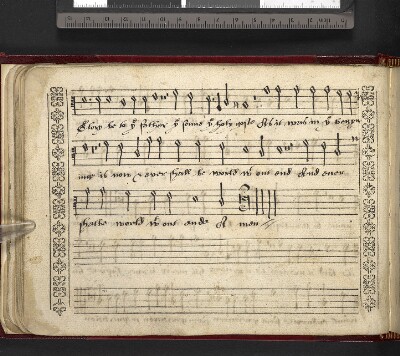 Glory be to yͤ father yͤ sonne yͤ holy goste As it was in yͤ begyn
ning is now & ever shall be world wᵗ out end And ever
shalbe world wᵗ out ende A men